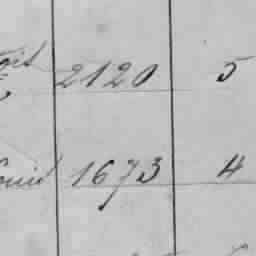 2120 5
1673 4